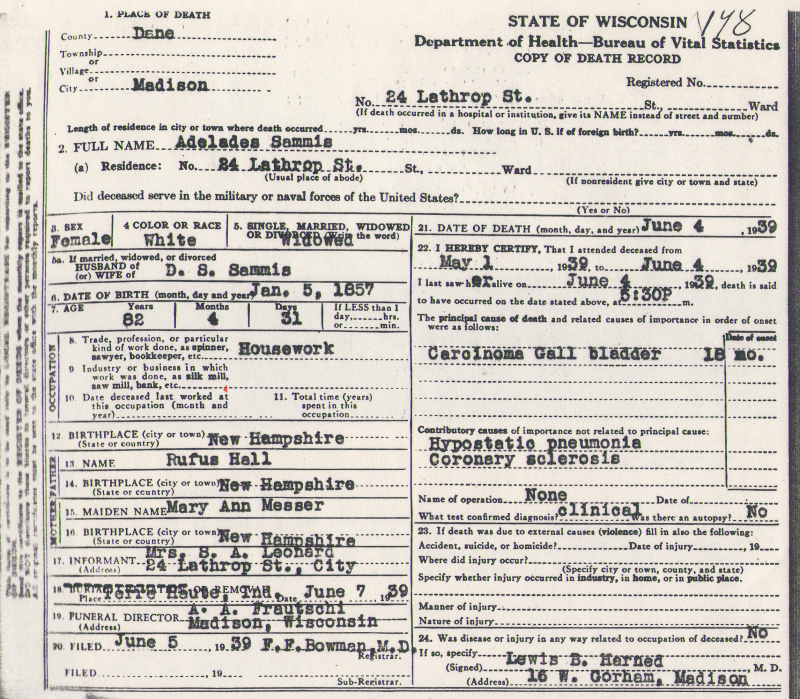 1. PLACE OF DEATH
County Dane
Township
or
Village
or
City Madison
STATE OF WISCONSIN 148
Department of Health—Bureau of Vital Statistics
COPY OF DEATH RECORD
Registered No.
No. 24 Lathrop St. St., Ward
(If death occurred in a hospital or institution, give its NAME instead of street and number)
Length of residence in city or town where death occurred yrs. mos. ds. How long in U. S. if of foreign birth? yrs. mos. ds.
2. FULL NAME Adelades Sammis
(a) Residence: No. 24 Lathrop St. St., Ward
(Usual place of abode) (If nonresident give city or town and state)
Did deceased serve in the military or naval forces of the United States?
(Yes or No)
3. SEX Female
4 COLOR OR RACE White
5. SINGLE, MARRIED, WIDOWED
OR DIVORCED (Write the word)
Widowed
5a. If married, widowed, or divorced
HUSBAND of
(or) WIFE of D. S. Sammis
6. DATE OF BIRTH (month, day and year) Jan. 5, 1857
7. AGE Years 82 Months 4 Days 31 If LESS than 1
day hrs.
or min.
OCCUPATION
8. Trade, profession, or particular
kind of work done, as spinner,
sawyer, bookkeeper, etc. Housework
9 Industry or business in which
work was done, as silk mill,
saw mill, bank, etc.
10. Date deceased last worked at
this occupation (month and
year)
11. Total time (years)
spent in this
occupation
12 BIRTHPLACE (city or town) New Hampshire
(State or country)
FATHER
13. NAME Rufus Hall
14. BIRTHPLACE (city or town) New Hampshire
(State or country)
MOTHER
15. MAIDEN NAME Mary Ann Messer
16. BIRTHPLACE (city or town) New Hampshire
(State or country)
17. INFORMANT Mrs. S. A. Leonard
(Address) 24 Lathrop St., City
18. BURIAL, CREMATION OR REMOVAL
Place Terre Haute, Ind. Date June 7 1939
19. FUNERAL DIRECTOR A. A. Frautschi
(Address) Madison, Wisconsin
20. FILED June 5, 1939 F.F.Bowman,M.D.
Registrar.
FILED , 19
Sub-Registrar.
21. DATE OF DEATH (month, day, and year) June 4 , 1939
22. I HEREBY CERTIFY, That I attended deceased from
May 1 , 1939, to June 4 , 1939
I last saw her alive on June 4 , 1939, death is said
to have occurred on the date stated above, at 5:30P m.
The principal cause of death and related causes of importance in order of onset
were as follows:
Date of onset
Carcinoma Gall bladder 18 mo.
Contributory causes of importance not related to principal cause:
Hypostatic pneumonia
Coronary sclerosis
Name of operation None Date of
What test confirmed diagnosis? clinical Was there an autopsy? No
23. If death was due to external causes (violence) fill in also the following:
Accident, suicide, or homicide? Date of injury , 19
Where did injury occur?
(Specify city or town, county, and state)
Specify whether injury occurred in industry, in home, or in public place.
Manner of injury
Nature of injury
24. Was disease or injury in any way related to occupation of deceased? No
If so, specify
(Signed) Lewis B. Harned M. D.
(Address) 16 W. Gorham, Madison